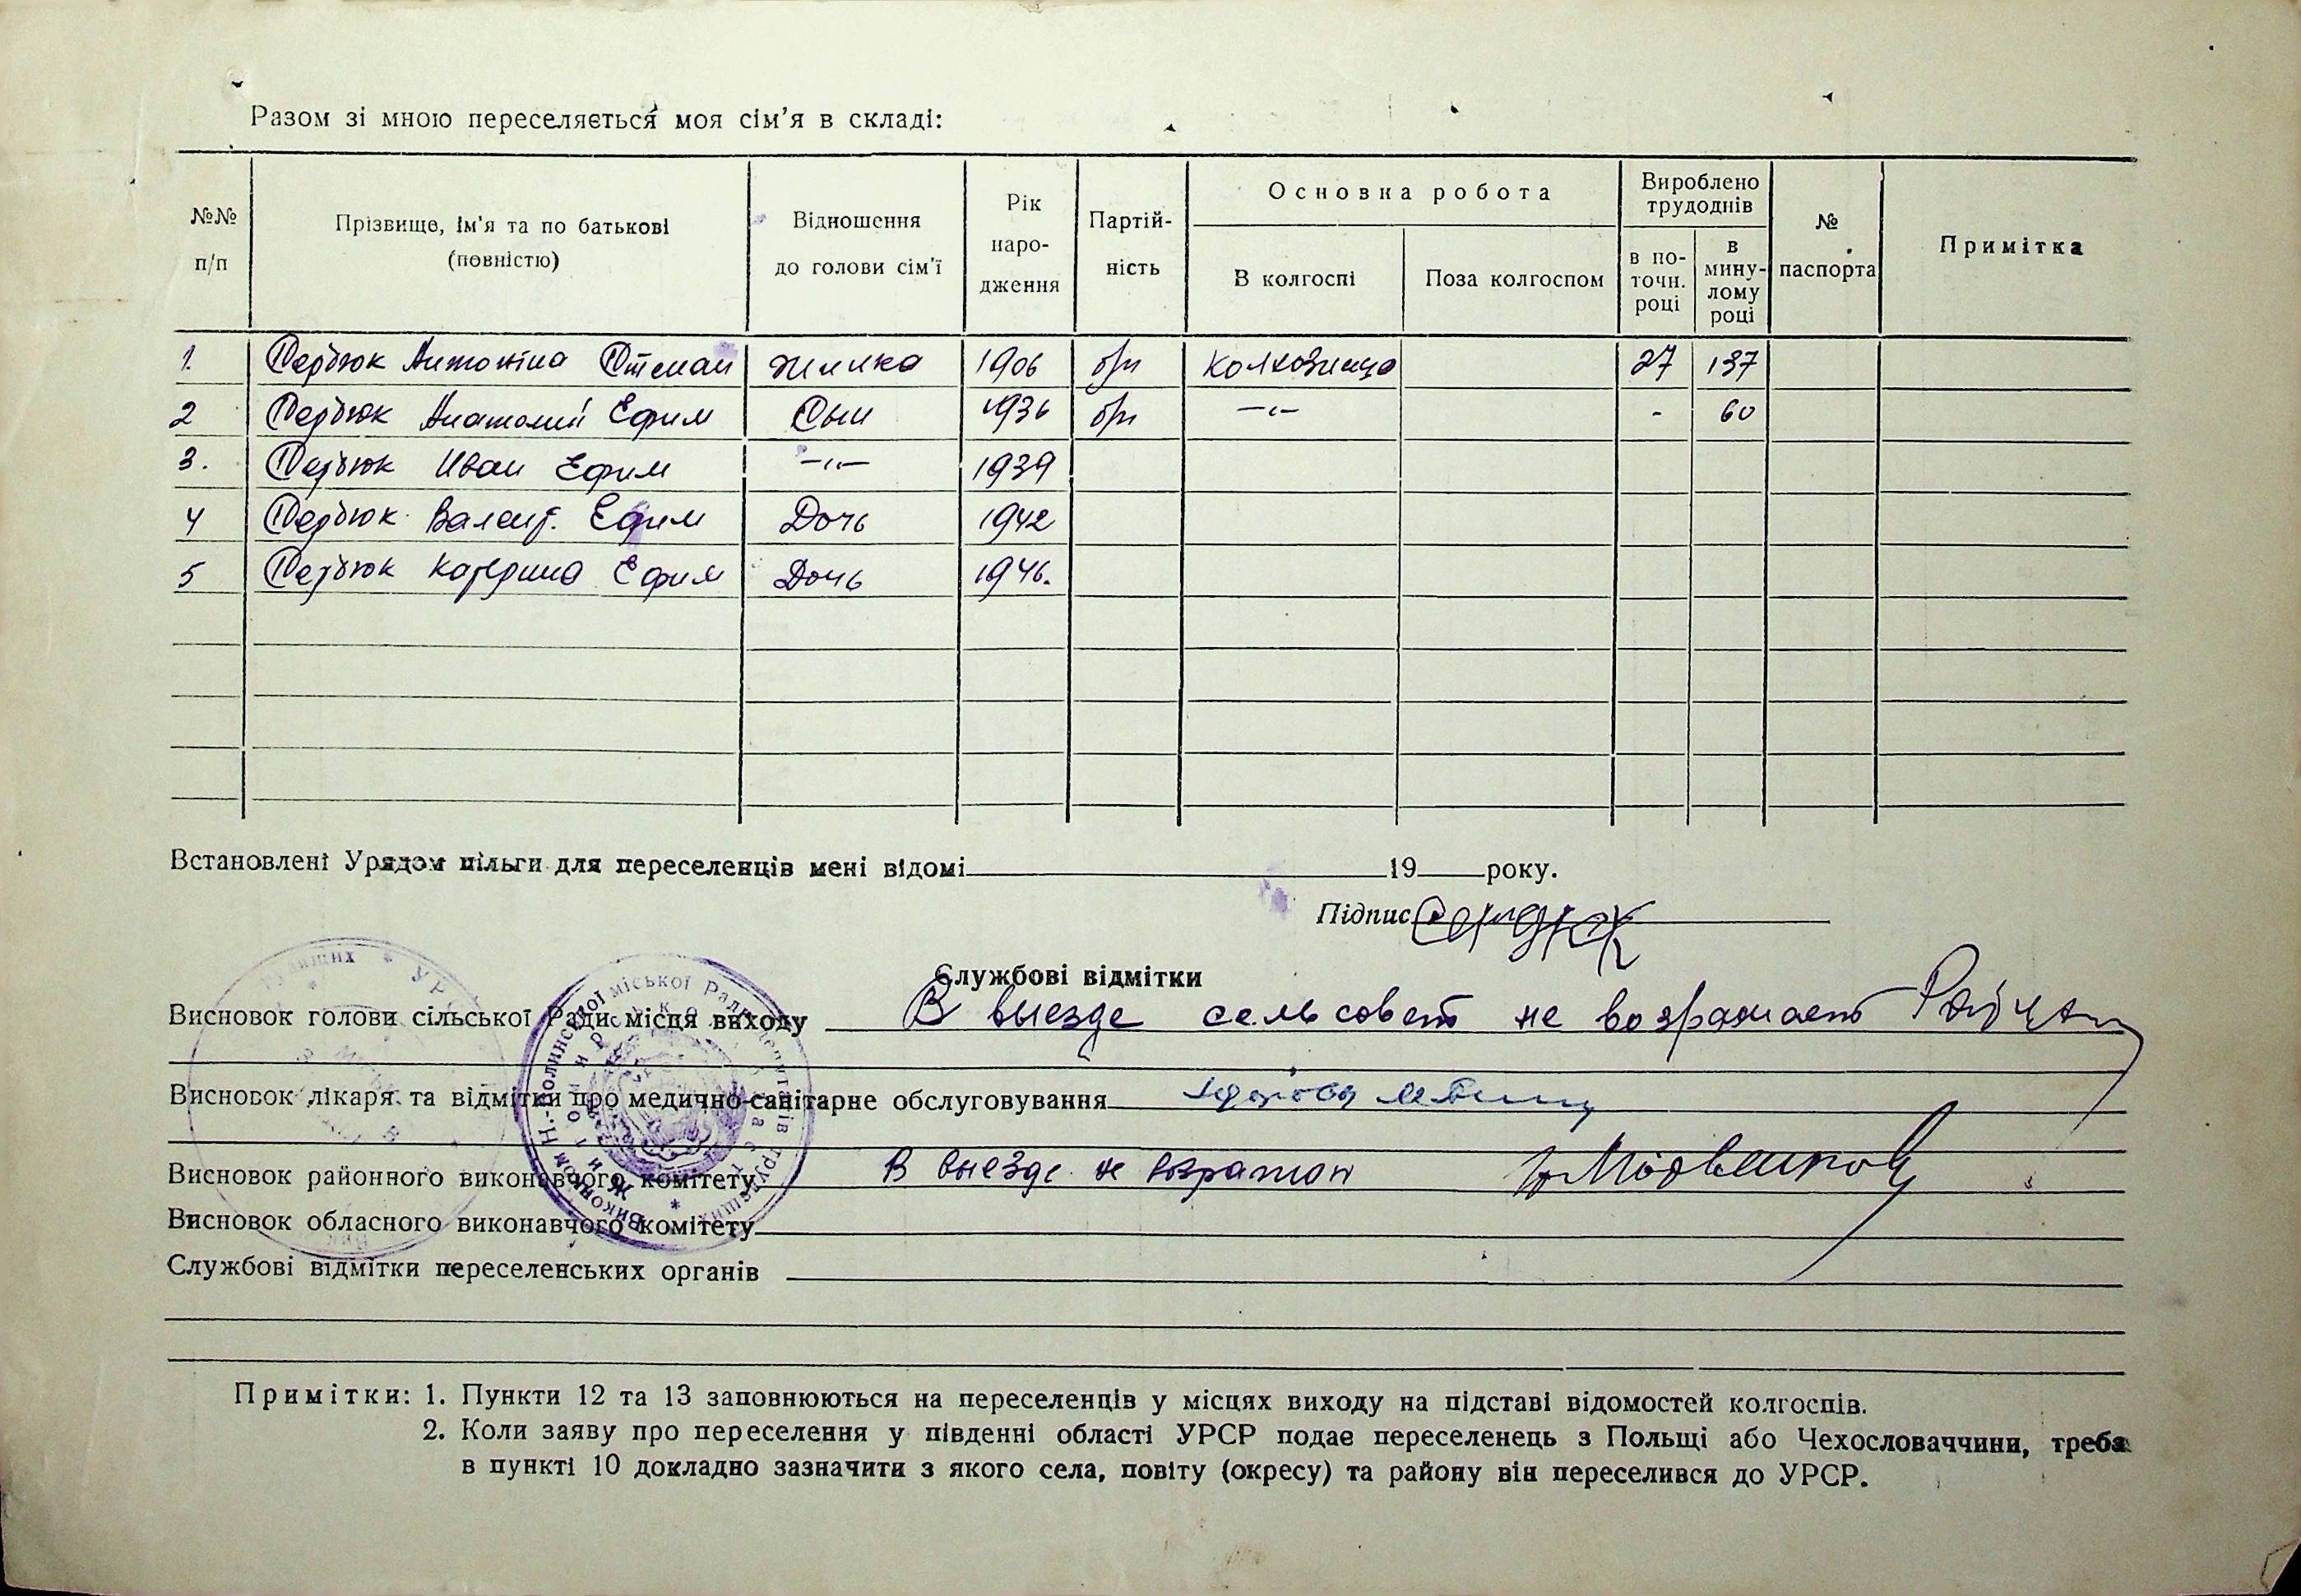 Разом зі мною переселяється моя сім'я в складі:
№№ п/п
Прізвище, ім'я та по батькові (повністю)
Відношення до голови сім'ї
Рік народження
Партійність
Основна робота
В колгоспі
Поза колгоспом
Вироблено трудоднів
в поточн. році
в минулому році
№ паспорта
Примітка
1. Сердюк Антоніна Степан жинка 1906 б/п колхозница 27 137
2 Сердюк Анатолий Ефим Сын 1936 б/п —"— - 60
3. Сердюк Иван Ефим —"— 1939
4 Сердюк Валент. Ефим Дочь 1942
5 Сердюк Катерина Ефим Дочь 1946.
Встановлені Урядом пільги для переселенців мені відомі 19 року.
Підпис Сердюк
Службові відмітки
Висновок голови сільської Ради місця виходу В выезде сельсовет не возражает
Висновок лікаря та відмітки про медично-санітарне обслуговування
Висновок районного виконавчого комітету В выезде не возражаем
Висновок обласного виконавчого комітету
Службові відмітки переселенських органів
Примітки: 1. Пункти 12 та 13 заповнюються на переселенців у місцях виходу на підставі відомостей колгоспів.
2. Коли заяву про переселення у південні області УРСР подає переселенець з Польщі або Чехословаччини, треба
в пункті 10 докладно зазначити з якого села, повіту (окресу) та району він переселився до УРСР.